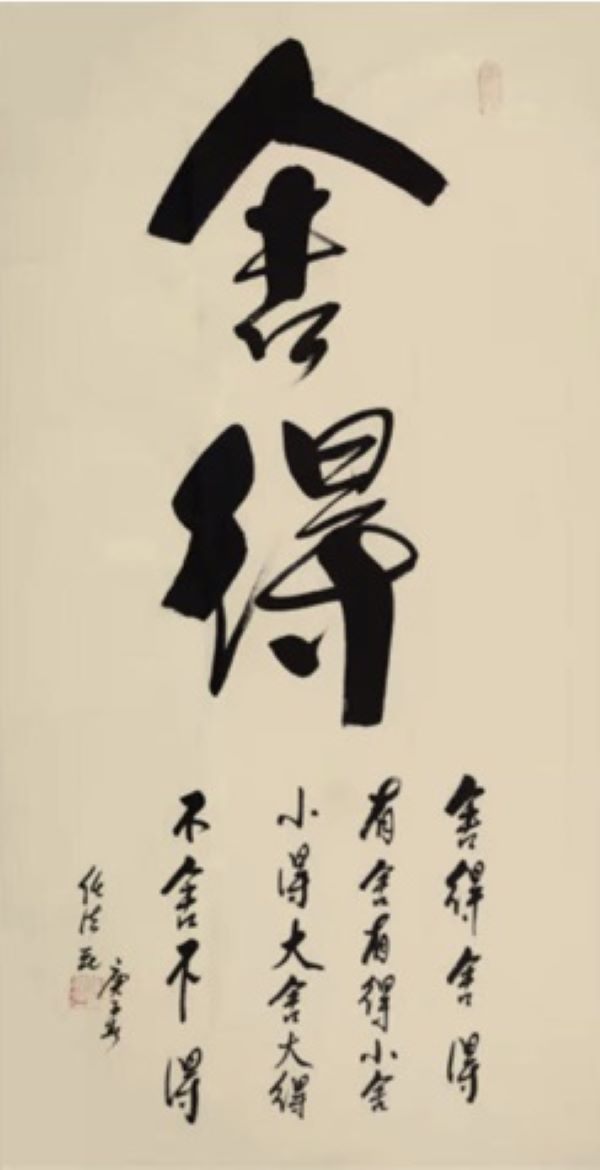 舍得
舍得舍得
有舍有得小舍
小得大舍大得
不舍不得
庚子春